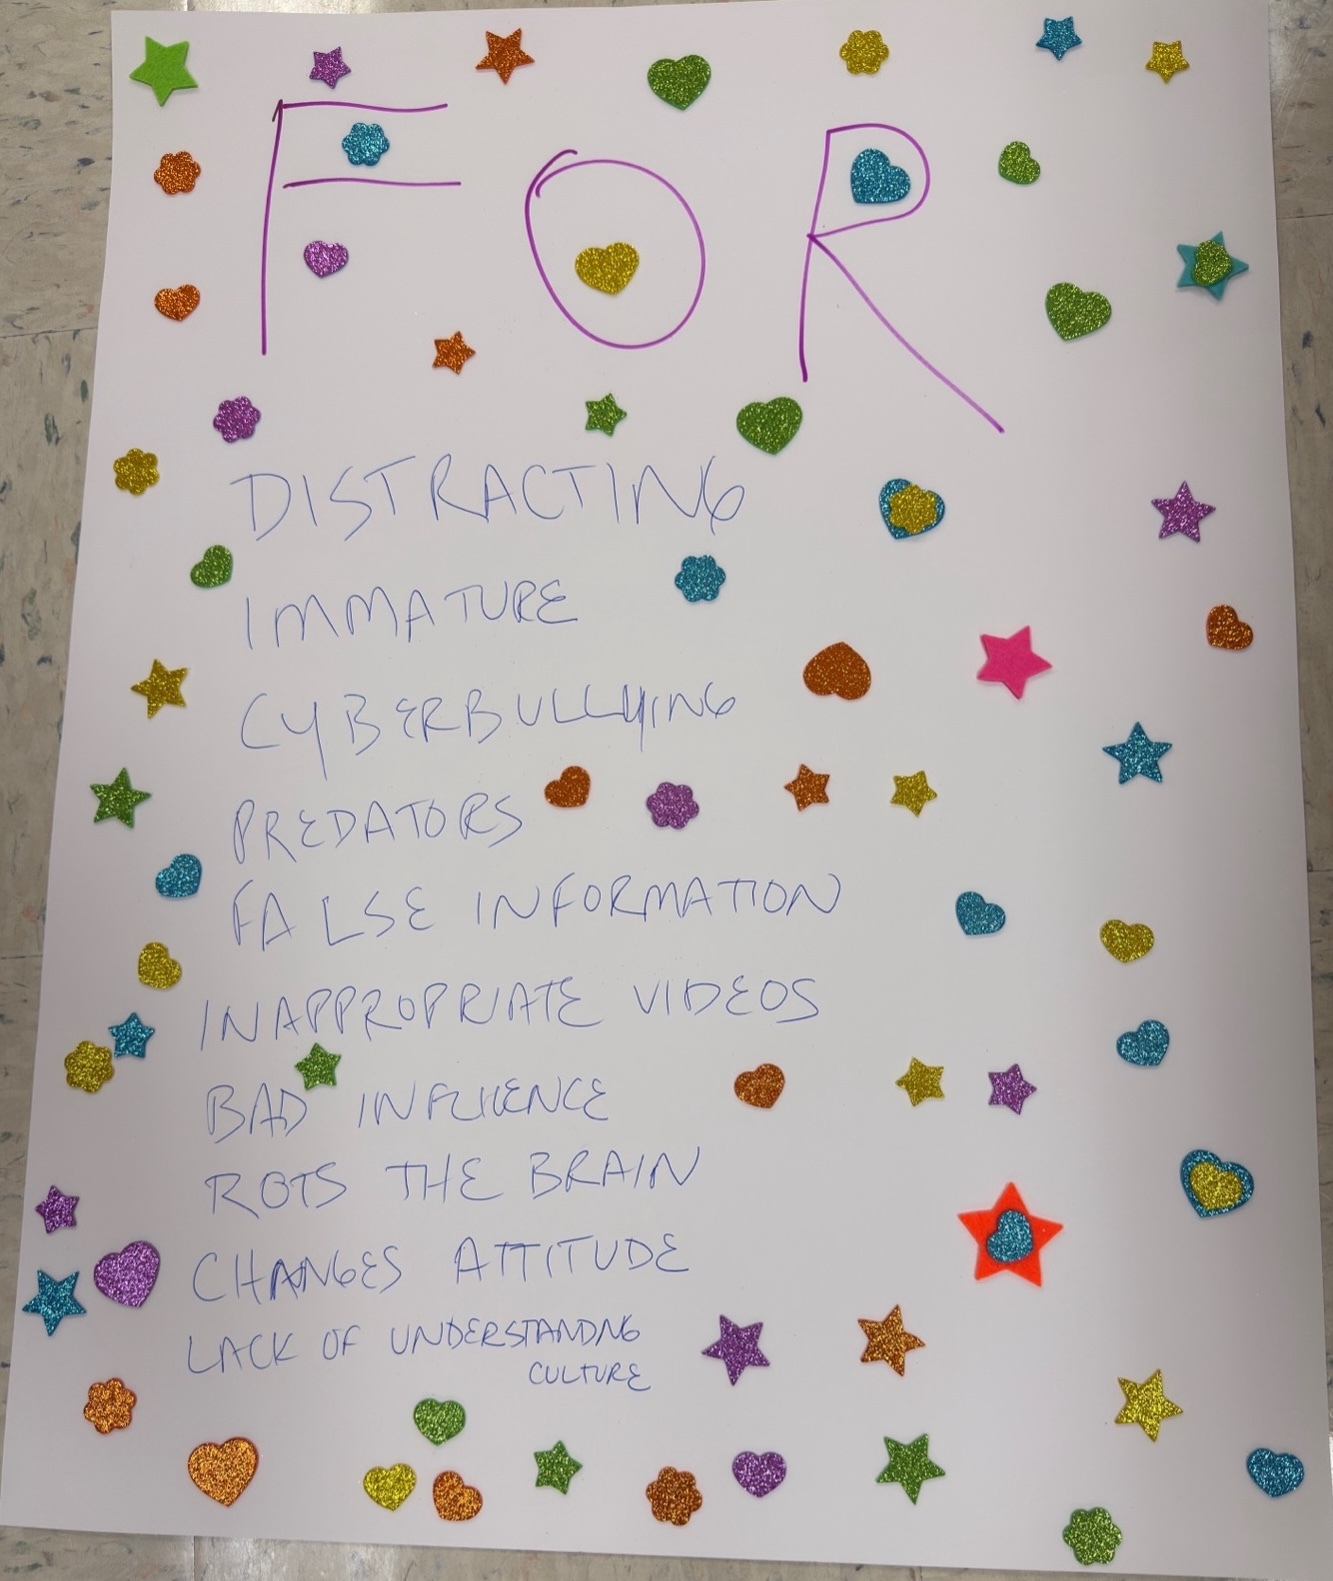 FOR
DISTRACTING
IMMATURE
CYBERBULLYING
PREDATORS
FALSE INFORMATION
INAPPROPRIATE VIDEOS
BAD INFLUENCE
ROTS THE BRAIN
CHANGES ATTITUDE
LACK OF UNDERSTANDNG
CULTURE